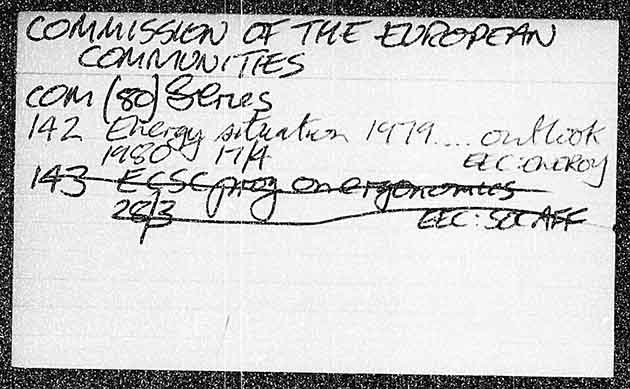 COMMISSION OF THE EUROPEAN
COMMUNITIES
COM (80) Series
142 Energy situation 1979.... outlook
1980 17/4 EEC: ENERGY
143 ECSC prog on ergonomics
28/3 EEC: SOC AFF